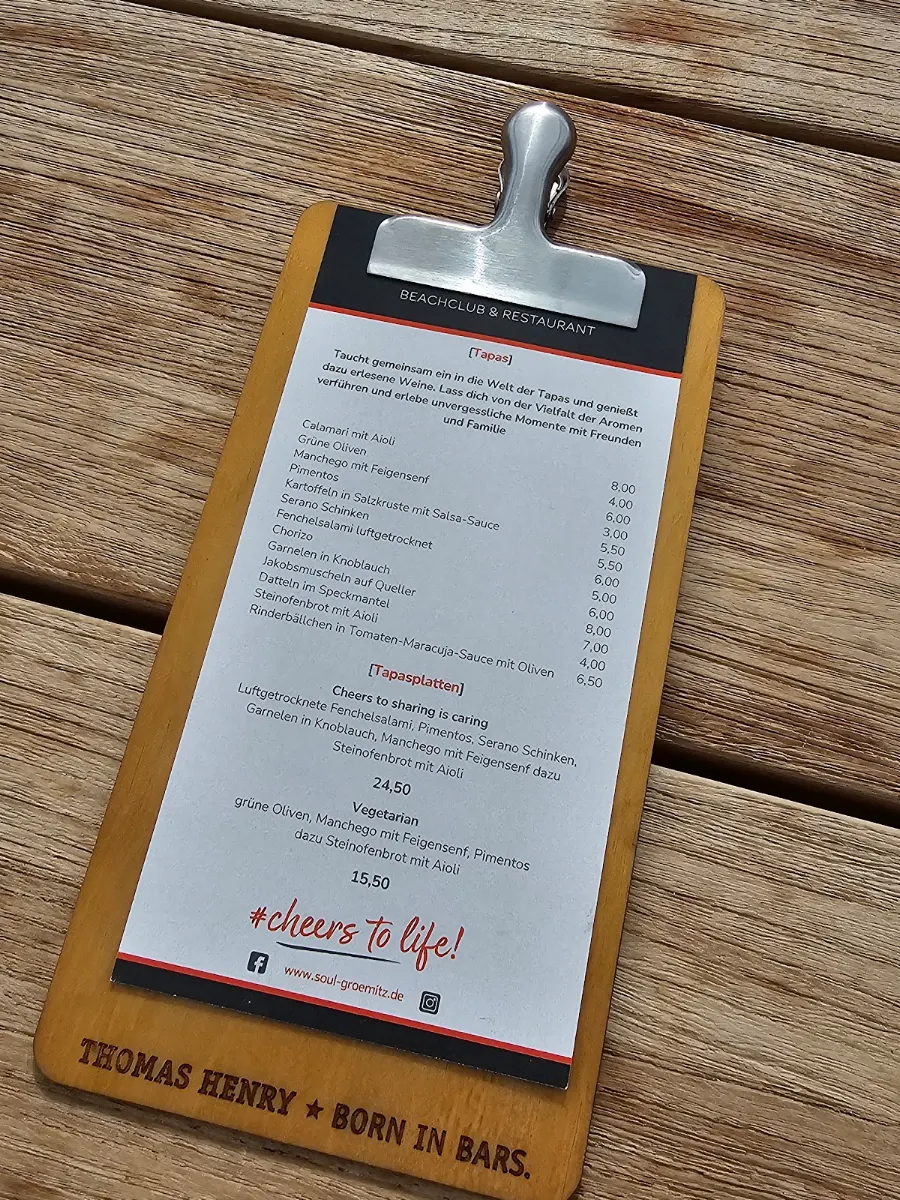 BEACHCLUB & RESTAURANT
[Tapas]
Taucht gemeinsam ein in die Welt der Tapas und genießt
dazu erlesene Weine. Lass dich von der Vielfalt der Aromen
verführen und erlebe unvergessliche Momente mit Freunden
und Familie
Calamari mit Aioli 8,00
Grüne Oliven 4,00
Manchego mit Feigensenf 6,00
Pimentos 3,00
Kartoffeln in Salzkruste mit Salsa-Sauce 5,50
Serano Schinken 5,50
Fenchelsalami luftgetrocknet 6,00
Chorizo 5,00
Garnelen in Knoblauch 6,00
Jakobsmuscheln auf Queller 8,00
Datteln im Speckmantel 7,00
Steinofenbrot mit Aioli 4,00
Rinderbällchen in Tomaten-Maracuja-Sauce mit Oliven 6,50
[Tapasplatten]
Cheers to sharing is caring
Luftgetrocknete Fenchelsalami, Pimentos, Serano Schinken,
Garnelen in Knoblauch, Manchego mit Feigensenf dazu
Steinofenbrot mit Aioli
24,50
Vegetarian
grüne Oliven, Manchego mit Feigensenf, Pimentos
dazu Steinofenbrot mit Aioli
15,50
#cheers to life!
www.soul-groemitz.de
THOMAS HENRY ★ BORN IN BARS.